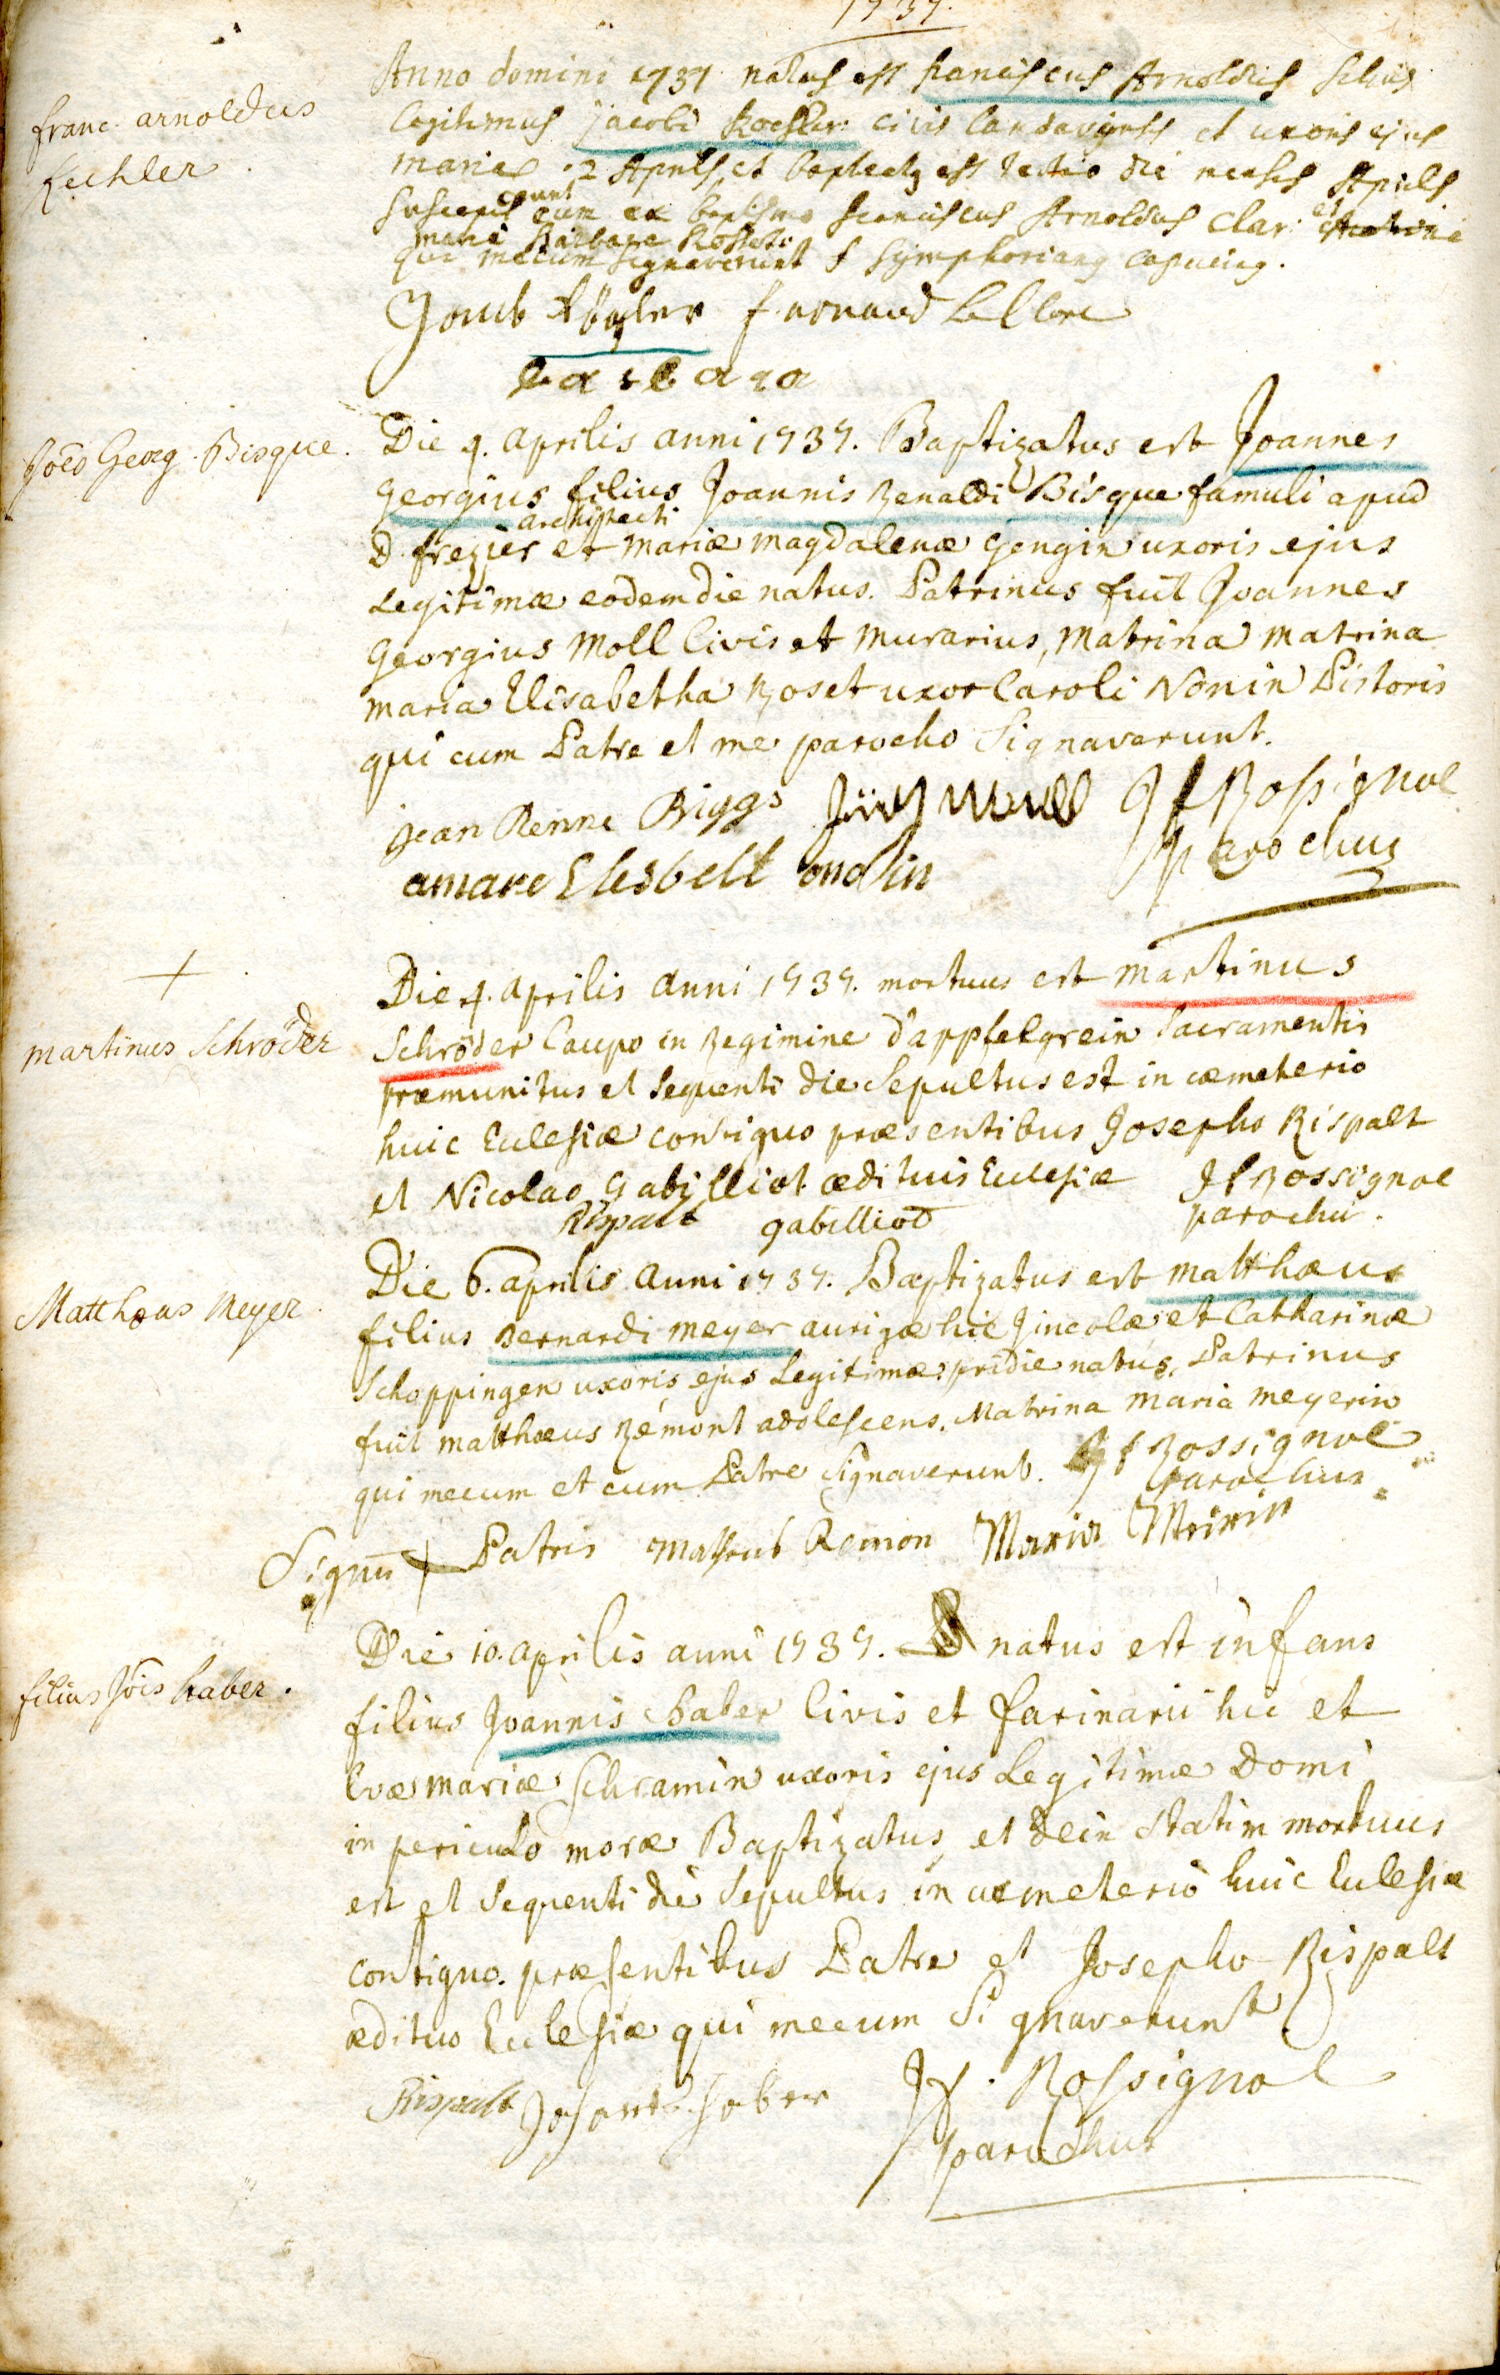 1737.
Anno domini 1737 natus est franciscus Arnoldus filius
franc. arnoldus
Kechler
legitimus jacobi Koechler civis landaviensis et uxoris ejus
mariae 2 Aprilis et baptizatus est tertio die mensis Aprilis
susceperunt eum ex baptismo franciscus Arnoldus Clar: et
maria Barbara
qui mecum signaverunt f Symphorianus capucinus.
Jacob f. arnaud
barbara
Joês Georg. Bisque.
Die 4. aprilis anni 1737. Baptizatus est Joannes
georgius filius Joannis Renaldi Bisque famuli apud
architecti
D. frezier et mariæ magdalenæ gengin uxoris ejus
Legitimæ eodem die natus. Patrinus fuit Joannes
Georgius Moll Civis et Murarius, Matrina matrina
maria Elisabetha Roset uxor Caroli Nonin Pistoris
qui cum Patre et me parocho Signaverunt.
jean Renne Biggs Jürg Moll JfRossignol
parochus
amare Elisbett onolin
+
martinus Schröder
Die 4. aprilis anni 1737. mortuus est martinus
Schröder Caupo in Regimine d'appfelgrein Sacramentis
præmunitus et Sequenti die Sepultus est in cæmeterio
huic Eclesiæ contiguo præsentibus Josepho Rispalt
et Nicolao Gabÿlliot ædituis Eclesiæ JfRossignol
Rispalt gabilliot parochus.
Matthæus Meyer
Die 6. aprilis anni 1737. Baptizatus est matthæus
filius Bernardi meyer aurigæ hic Jincolæ, et Catharinæ
Schoppingen uxoris ejus Legitimæ pridie natus. Patrinus
fuit matthæus Rémont adolescens. Matrina maria meyerin
qui mecum et cum Patre Signaverunt. Jf Rossignol
parochus
Signũ + Patris Matheus Remon Maria Meirin
filius Jois haber.
Die 10. aprilis anni 1737. natus est infans
filius Joannis haber Civis et farinarii hic et
Evæ mariæ Schramin uxoris ejus Legitimæ Domi
in periculo moræ Baptizatus, et dein Statim mortuus
est et Sequenti die Sepultus in cæmeterio huic Eclesiæ
contiguo. præsentibus Patre et Josepho Rispalt
ædituo Eclesiæ qui mecum Signaverunt
Rispalt Johannes haber Jf. Rossignol
parochus